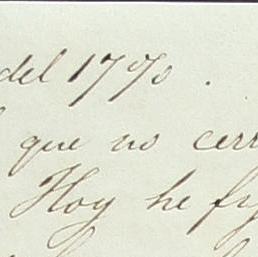 del 17%.
que no cerr
Hoy he fy